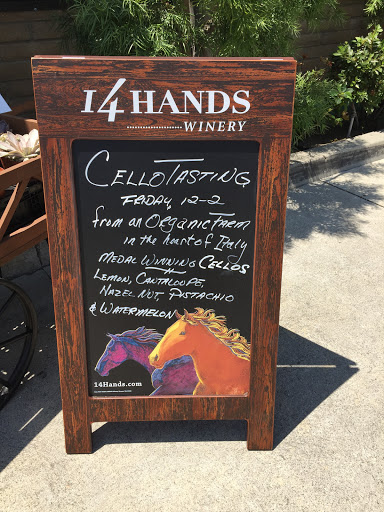 14 HANDS
WINERY
CELLO TASTING
FRIDAY, 12-2
from an ORGANIC FARM
in the heart of Italy
MEDAL WINNING CELLOS
LEMON, CANTALOUPE,
HAZEL NUT, PISTACHIO
& WATERMELON
14Hands.com